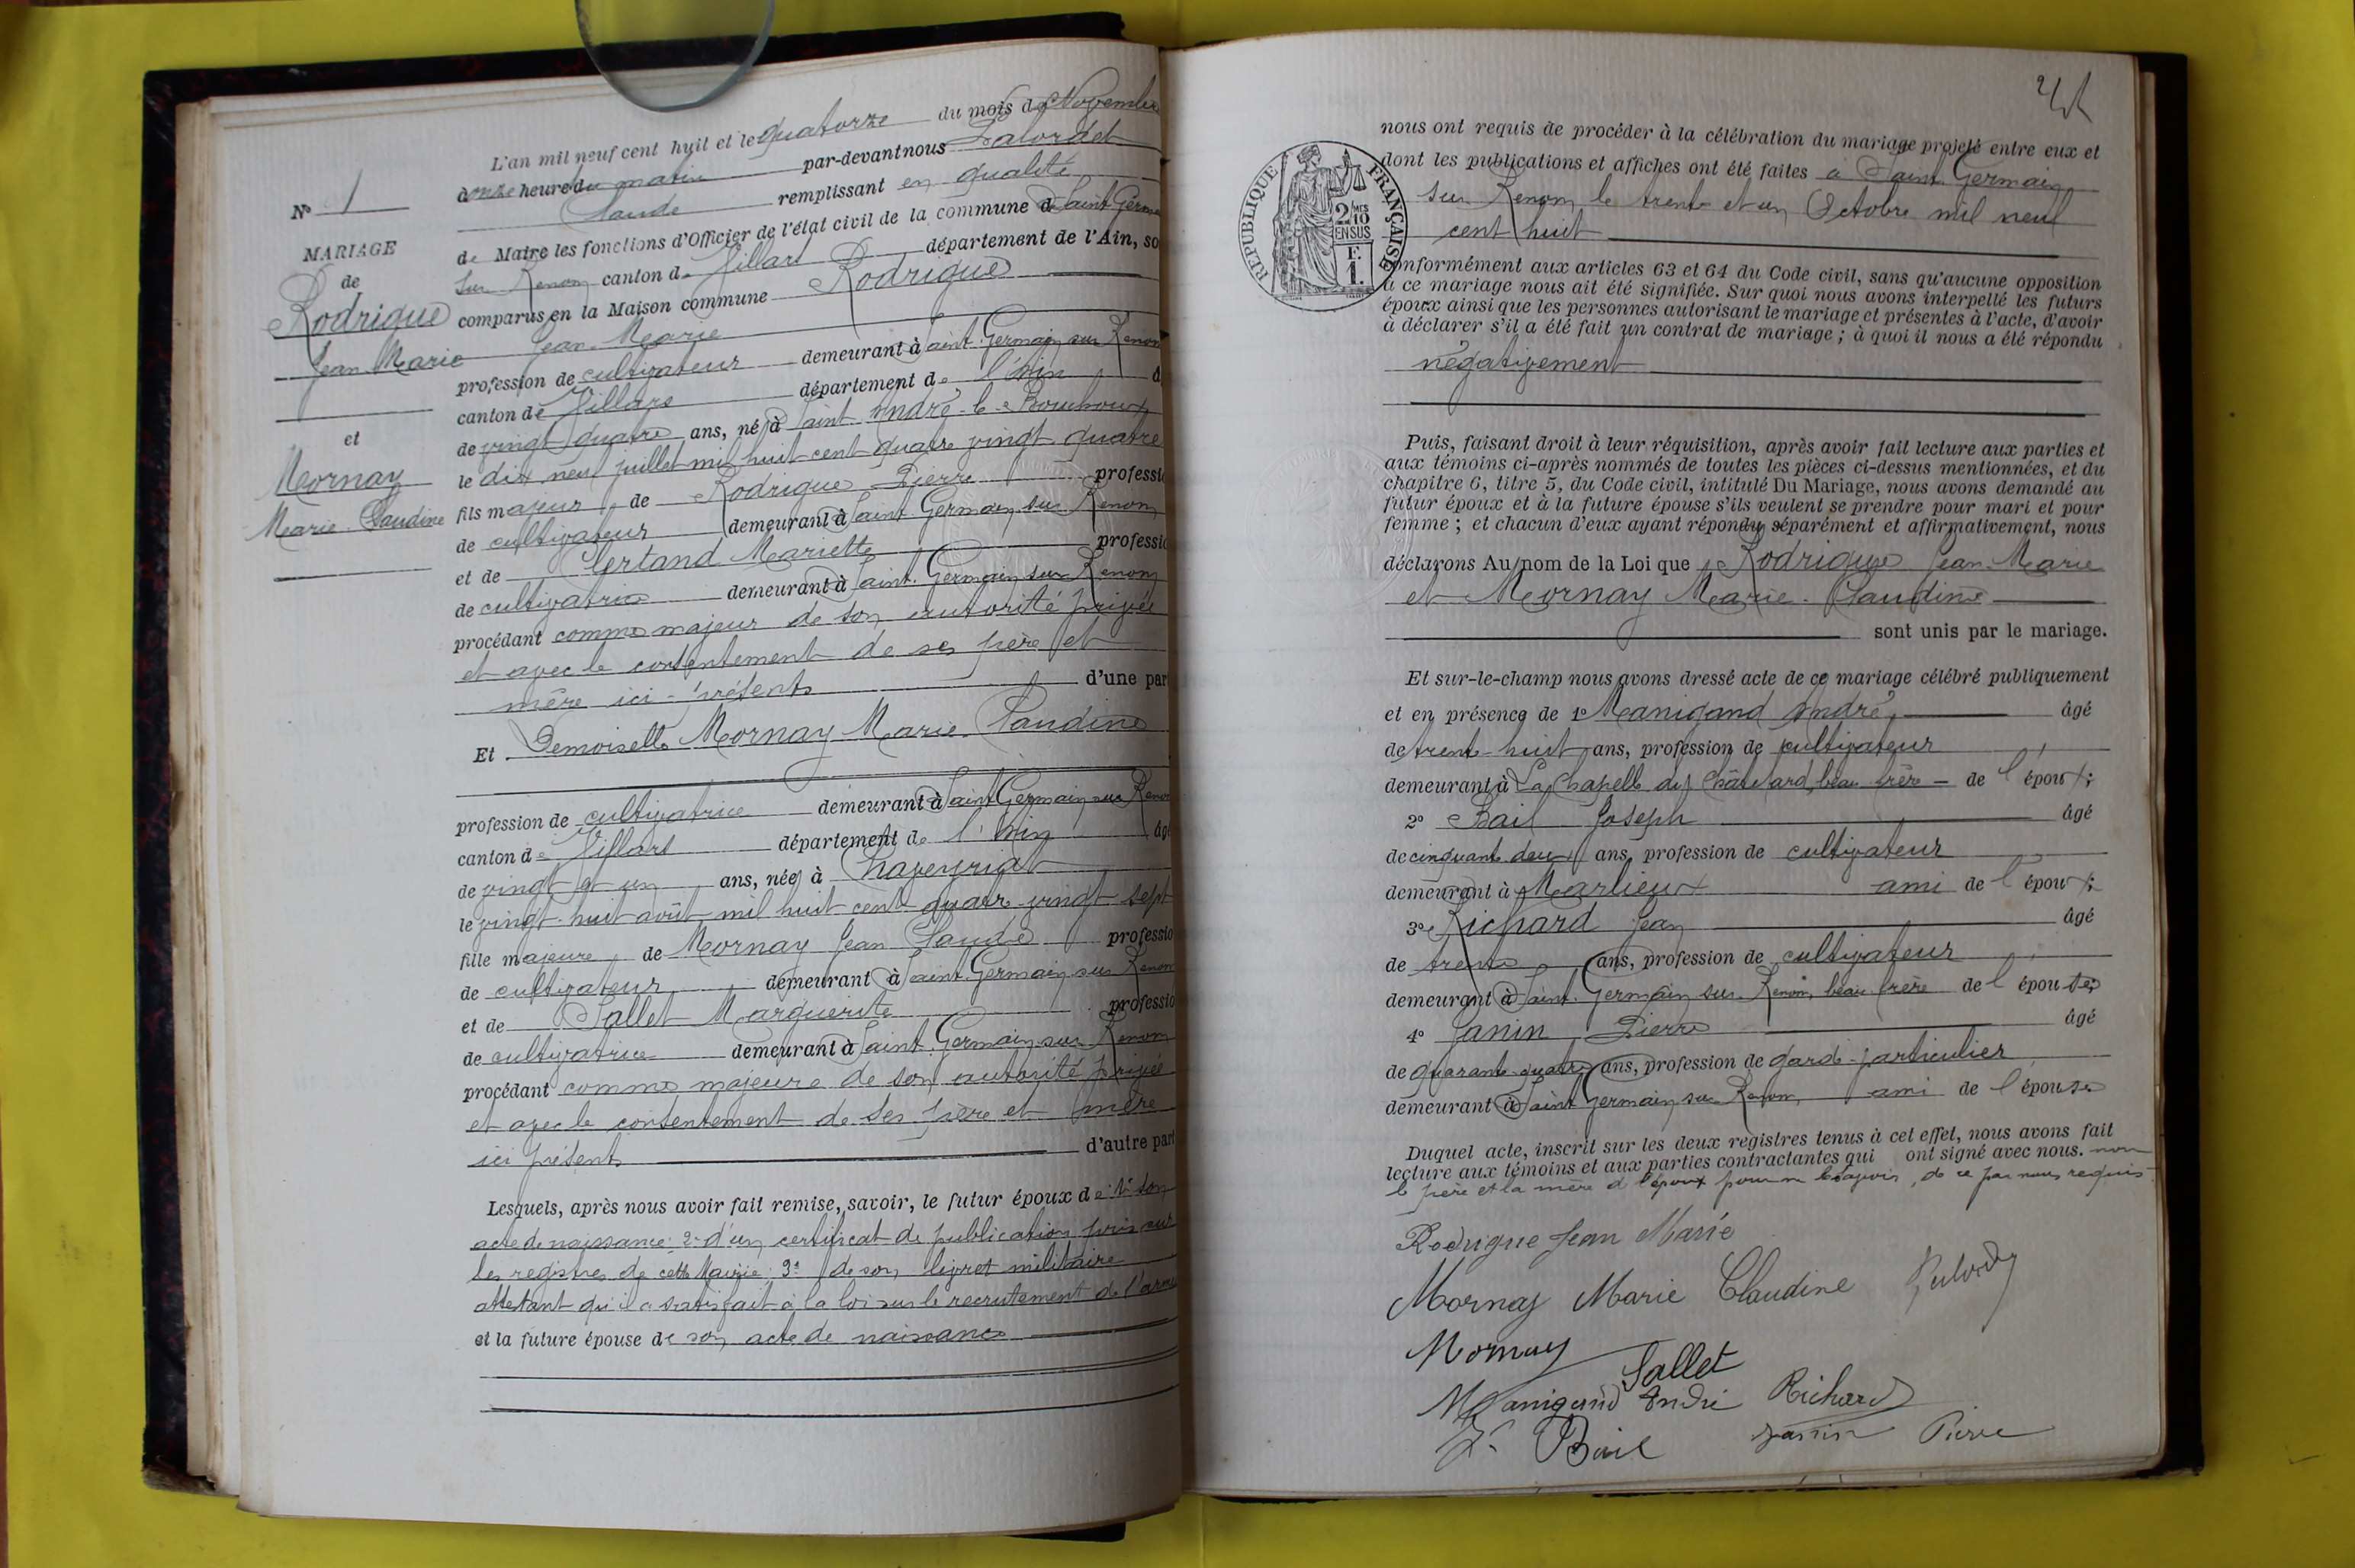 L'an mil neuf cent huit et le quatorze du mois de Novembre
à onze heure du matin par-devant nous
Claude remplissant en qualité
de Maire les fonctions d'Officier de l'état civil de la commune de Saint Germain
sur Renom canton de Villars département de l'Ain, so
comparus en la Maison commune Rodrigue
Jean Marie
profession de cultivateur demeurant à Saint Germain sur Renom
canton de Villars département de l'Ain
de vingt quatre ans, né à Saint André-le-Bouchoux
le dix neuf juillet mil huit cent quatre vingt quatre
fils majeur de Rodrigue Pierre professi
de cultivateur demeurant à Saint Germain sur Renom
et de Certand Mariette professi
de cultivatrice demeurant à Saint Germain sur Renom
procédant comme majeur de son autorité privée
et avec le consentement de ses père et
mère ici-présents d'une par
Et Demoiselle Mornay Marie Claudine
profession de cultivatrice demeurant à Saint Germain sur Renom
canton de Villars département de l'Ain âgé
de vingt et un ans, née à Chaveyriat
le vingt-huit août mil huit cent quatre-vingt sept
fille majeure de Mornay Jean Claude professio
de cultivateur demeurant à Saint Germain sur Renom
et de Sallet Marguerite professio
de cultivatrice demeurant à Saint Germain sur Renom
procédant comme majeure de son autorité privée
et avec le consentement de ses père et mère
ici présents d'autre part
Lesquels, après nous avoir fait remise, savoir, le futur époux de 1° son
acte de naissance 2° d'un certificat de publication pris sur
les registres de cette Mairie; 3° de son livret militaire
attestant qu'il a satisfait à la loi sur le recrutement de l'armé
et la future épouse de son acte de naissance
N° 1
MARIAGE
de
Rodrigue
Jean Marie
et
Mornay
Marie-Claudine
RÉPUBLIQUE FRANÇAISE
2/10
EN SUS
F.
1.
nous ont requis de procéder à la célébration du mariage projeté entre eux et
dont les publications et affiches ont été faites à Saint Germain
sur Renom le trente et un Octobre mil neuf
cent huit
conformément aux articles 63 et 64 du Code civil, sans qu'aucune opposition
à ce mariage nous ait été signifiée. Sur quoi nous avons interpellé les futurs
époux ainsi que les personnes autorisant le mariage et présentes à l'acte, d'avoir
à déclarer s'il a été fait un contrat de mariage ; à quoi il nous a été répondu
négativement
Puis, faisant droit à leur réquisition, après avoir fait lecture aux parties et
aux témoins ci-après nommés de toutes les pièces ci-dessus mentionnées, et du
chapitre 6, titre 5, du Code civil, intitulé Du Mariage, nous avons demandé au
futur époux et à la future épouse s'ils veulent se prendre pour mari et pour
femme ; et chacun d'eux ayant répondu séparément et affirmativement, nous
déclarons Au nom de la Loi que Rodrigue Jean-Marie
et Mornay Marie-Claudine
sont unis par le mariage.
Et sur-le-champ nous avons dressé acte de ce mariage célébré publiquement
et en présence de 1° Manigand André, âgé
de trente-huit ans, profession de cultivateur
demeurant à La Chapelle du Châtelard, beau frère - de l'époux;
2° Bail Joseph âgé
de cinquante deux ans, profession de cultivateur
demeurant à Marlieux ami de l'époux;
3° Richard Jean âgé
de trente ans, profession de cultivateur
demeurant à Saint Germain sur Renom, beau frère de l'épouse;
4° Janin Pierre âgé
de quarante-quatre ans, profession de garde-particulier
demeurant à Saint Germain sur Renom, ami de l'épouse
Duquel acte, inscrit sur les deux registres tenus à cet effet, nous avons fait
lecture aux témoins et aux parties contractantes qui ont signé avec nous. non
le père et la mère de l'époux pour ne le savoir, de ce par nous requis
Rodrigue Jean Marie
Mornay Marie Claudine
Mornay
Sallet
Manigand André Richard
J. Bail Janin Pierre